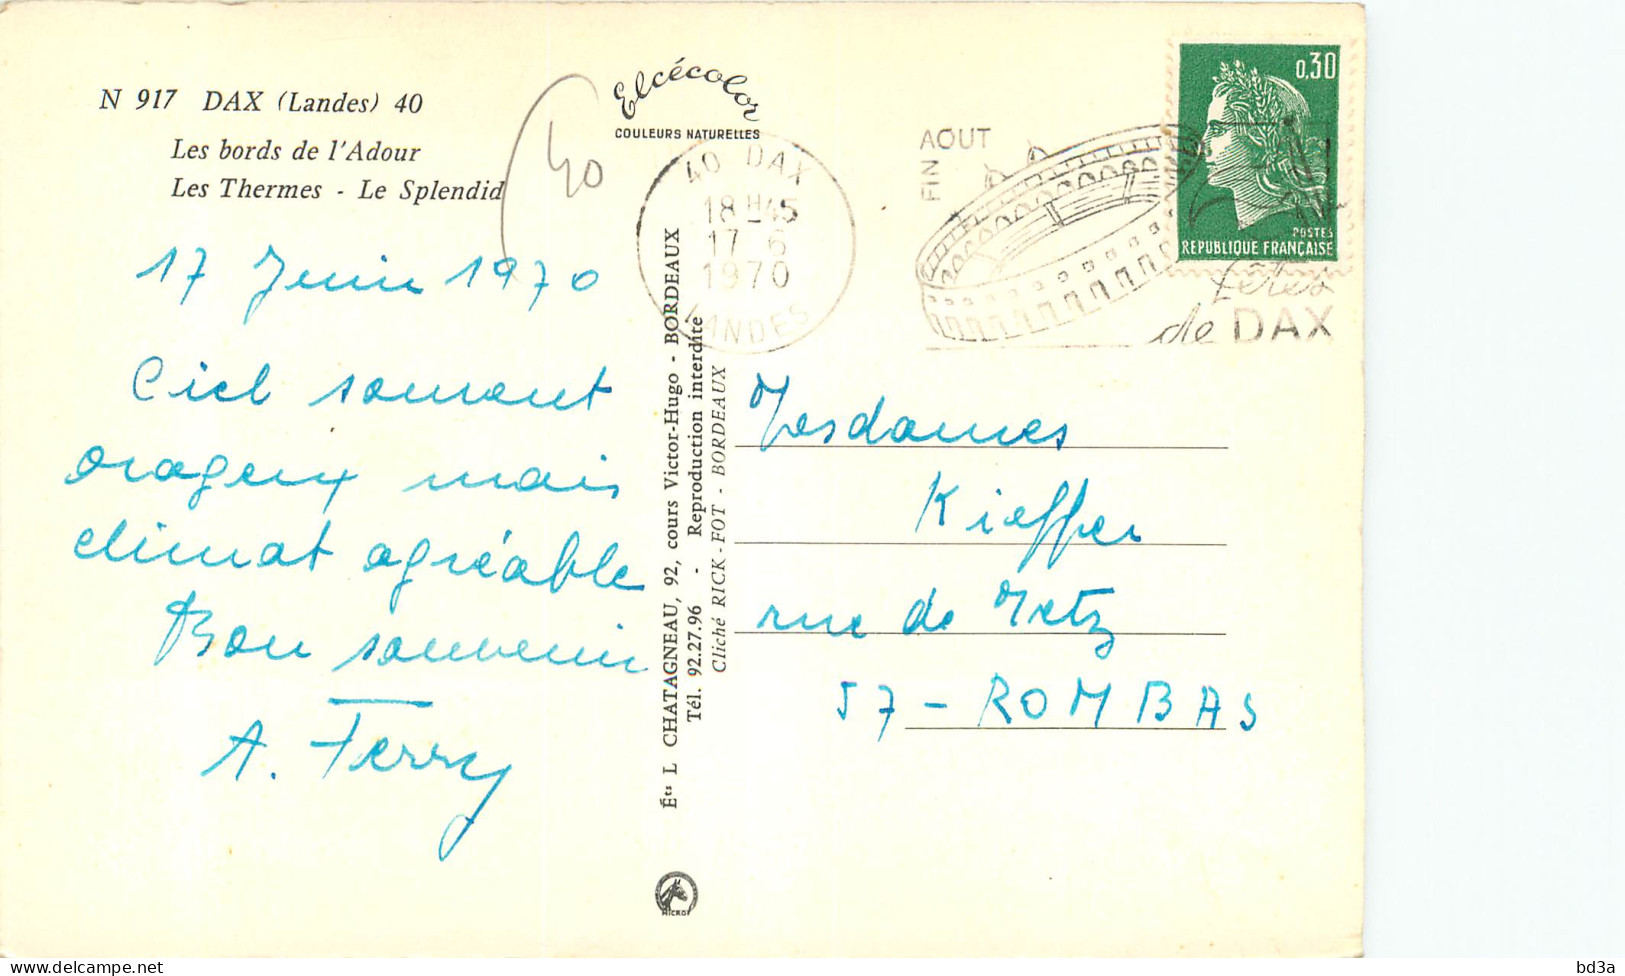 N 917 DAX (Landes) 40
Les bords de l'Adour
Les Thermes - Le Splendid
40
17 Juin 1970
Ciel souvent
orageux mais
climat agréable
Bon souvenir
A. Ferry
Elcécolor
COULEURS NATURELLES
40 DAX
18H45
17 6
1970
LANDES
FIN AOUT
Fêtes
de DAX
0,30
POSTES
REPUBLIQUE FRANÇAISE
Éts L CHATAGNEAU, 92, cours Victor-Hugo - BORDEAUX
Tél. 92.27.96 - Reproduction interdite
Cliché RICK-FOT - BORDEAUX
Mesdames
Kieffer
rue de Metz
57 - ROMBAS
MICRO
bd3a
delcampe.net